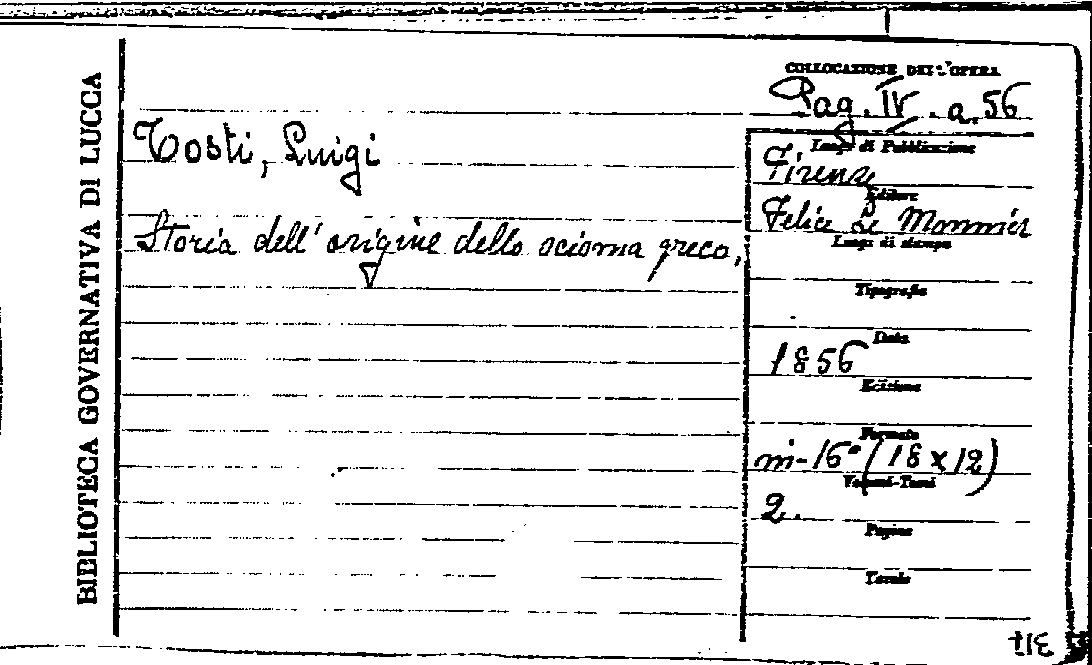 BIBLIOTECA GOVERNATIVA DI LUCCA
COLLOCAZIONE DELL'OPERA
Pag. IV. a. 56
Tosti, Luigi
Storia dell'origine dello scisma greco,
Luogo di Pubblicazione
Firenze
Editore
Felice Le Monnier
Luogo di stampa
Tipografia
Data
1856
Edizione
Formato
in-16° (18 x 12)
Volumi-Tomi
2.
Pagine
Tavole